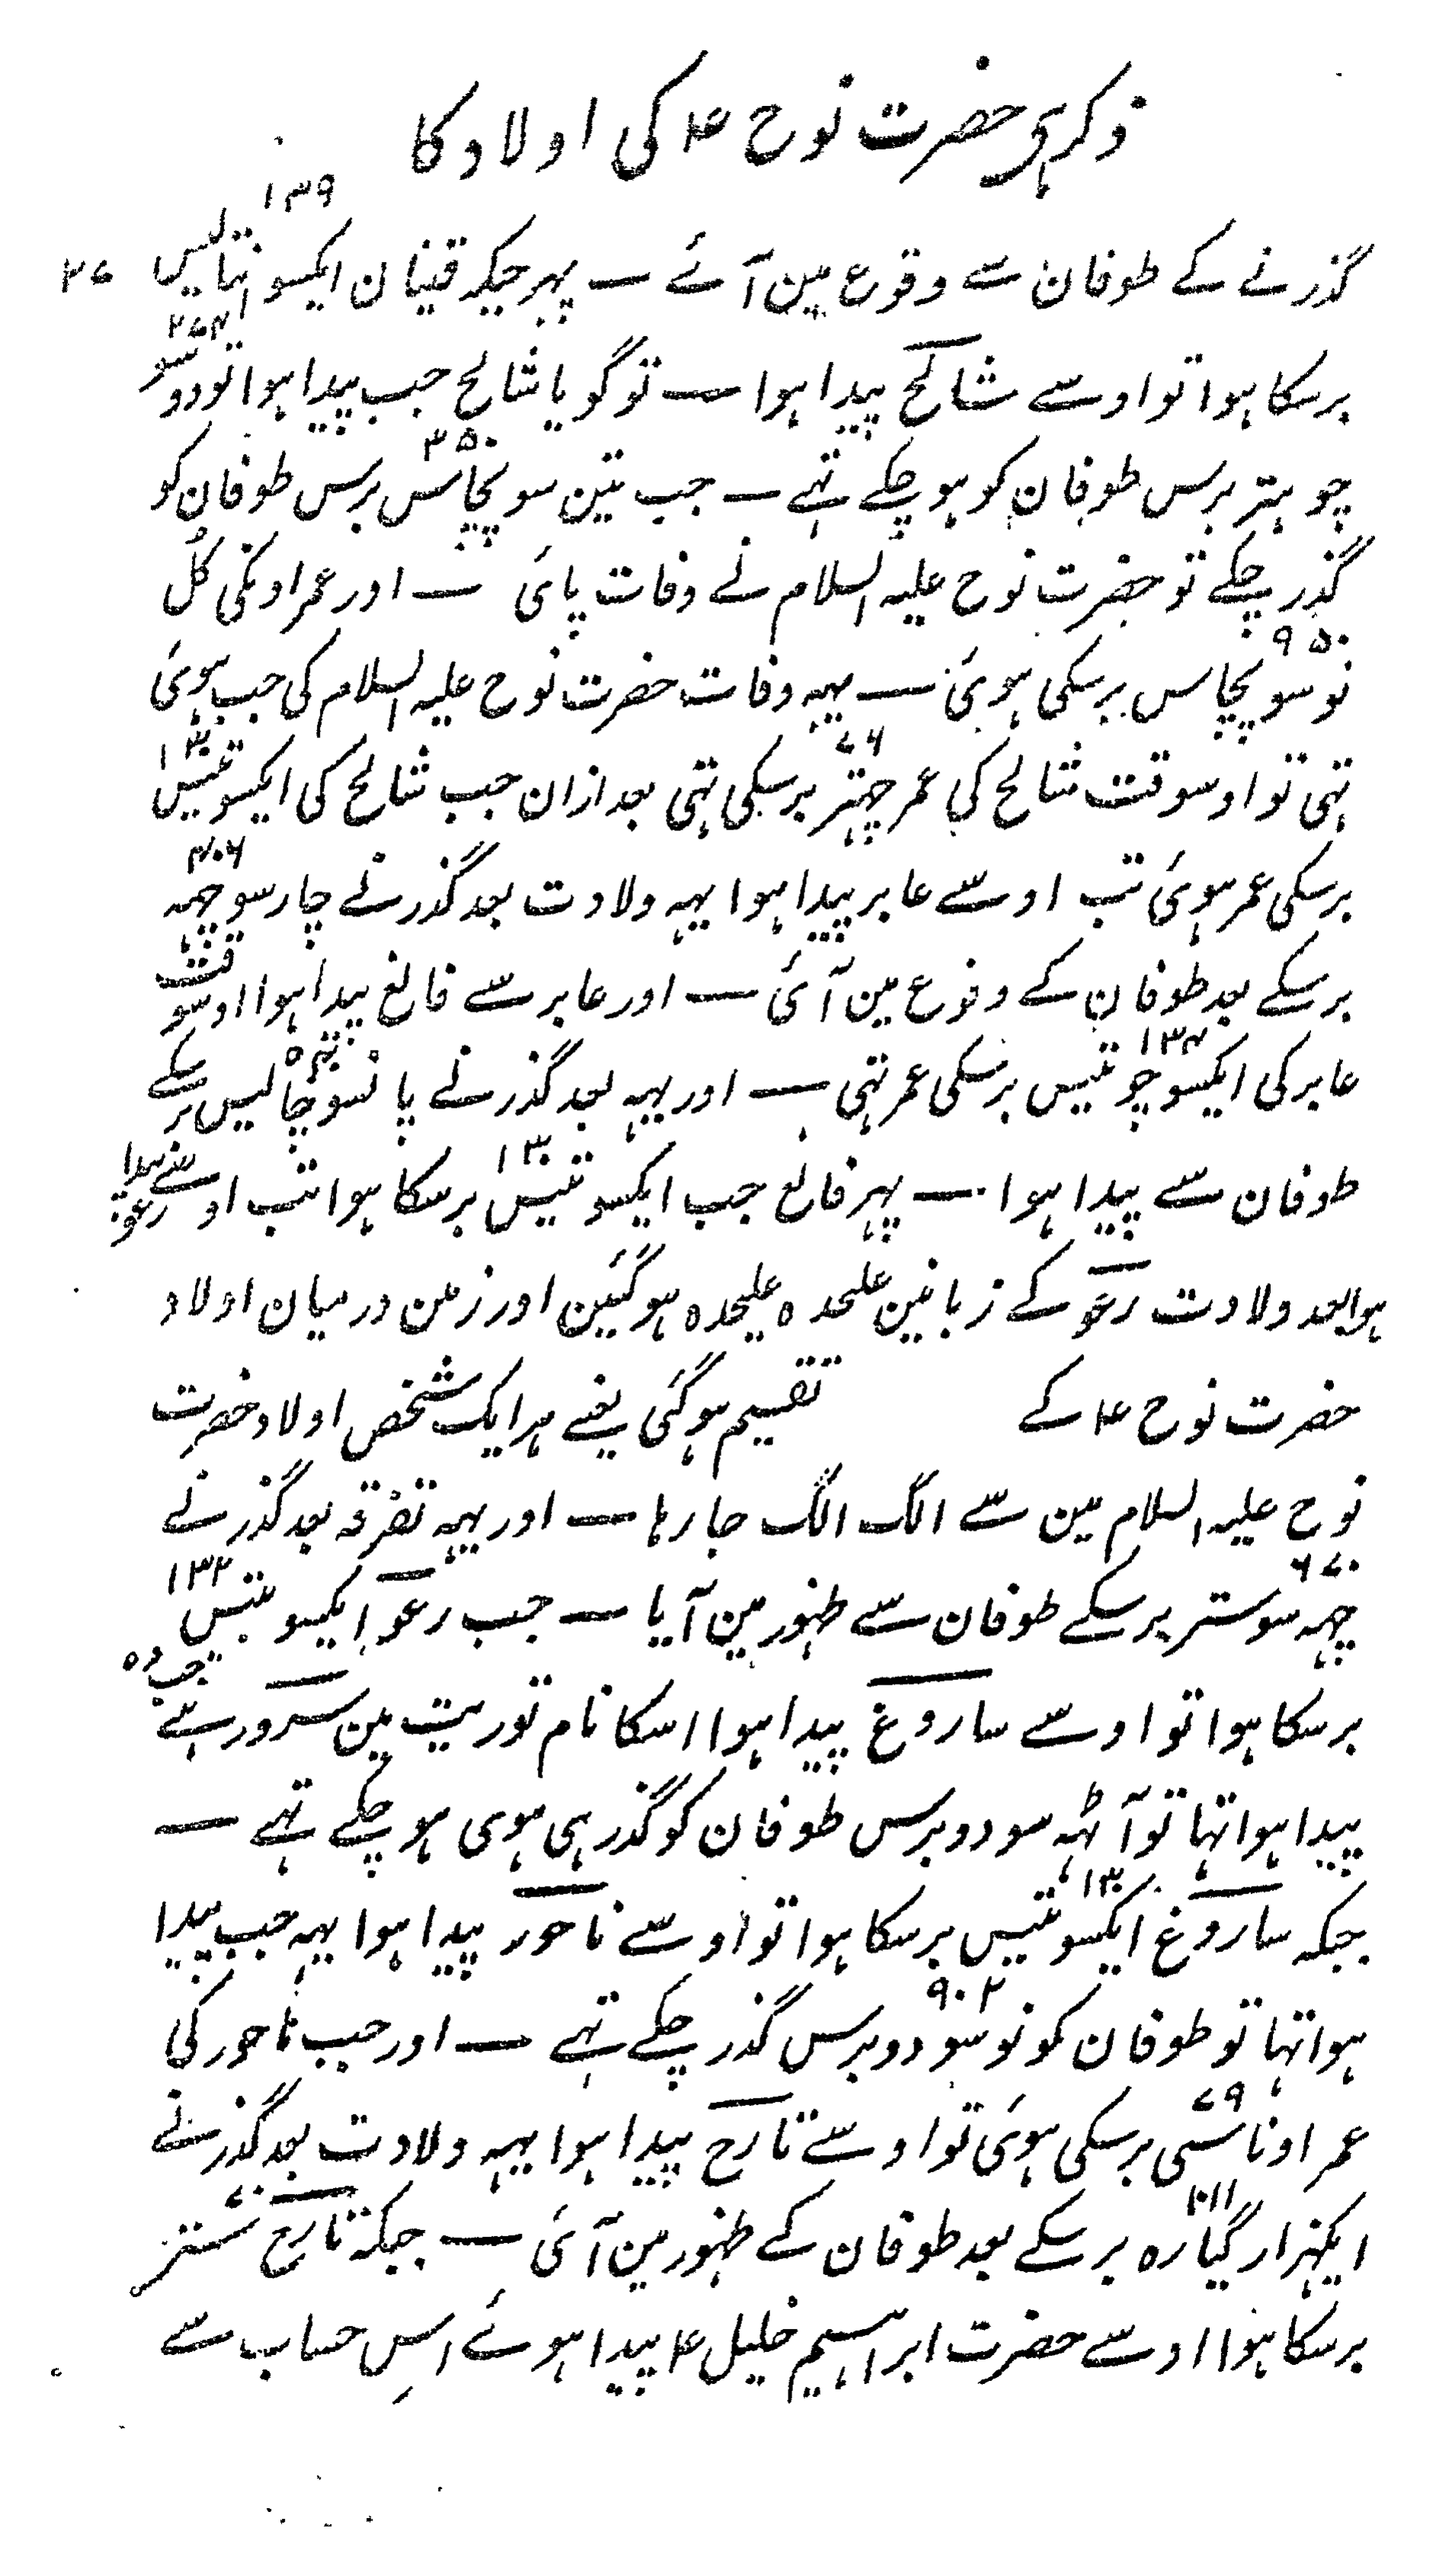 ذکر ہی حضرت نوح ۴ کی اولاد کا
۱۳۹
۲۷ گذرنے کے طوفان سے وقوع مین آئے — پہر جبکہ قینان ایکسو انتالیس
۲۷۴
برسکا ہوا تو اوسے شالح پیدا ہوا — تو گویا شالح جب پیدا ہوا تو دو سو
۳۵۰
چوہتر برس طوفان کو ہو چکے تہے — جب تین سو پچاس برس طوفان کو
گذر چکے تو حضرت نوح علیہ السلام نے وفات پائی — اور عمر اونکی کُل
۹۵۰
نو سو پچاس برسکی ہوئی — یہہ وفات حضرت نوح علیہ السلام کی جب ہوئی
۷۶ ۱۳۰
تہی تو اوسوقت شالح کی عمر چہتر برسکی تہی بعد ازان جب شالح کی ایکسو تیس
۴۰۶
برسکی عمر ہوئی تب اوسے عابر پیدا ہوا یہہ ولادت بعد گذرنے چار سو چہہ
برسکے بعد طوفان کے وقوع مین آئی — اور عابر سے فالغ پیدا ہوا اوسوقت
۱۳۴ ۵۴۰
عابر کی ایکسو چونتیس برسکی عمر تہی — اور یہہ بعد گذرنے پانسو چالیس برسکے
۱۳۰
طوفان سے پیدا ہوا — پہر فالغ جب ایکسو تیس برسکا ہوا تب اوسے رعو پیدا
ہوا بعد ولادت رعو کے زبانین علیحدہ علیحدہ ہوگئین اور زمین درمیان اولاد
حضرت نوح ۴ کے تقسیم ہوگئی یعنے ہر ایک شخص اولاد حضرت
نوح علیہ السلام مین سے الگ الگ جا رہا — اور یہہ تفرقہ بعد گذرنے
۶۷۰ ۱۳۲
چہہ سو ستر برسکے طوفان سے ظہور مین آیا — جب رعو ایکسو بتیس
برسکا ہوا تو اوسے ساروغ پیدا ہوا اسکا نام توریت مین سرور ہے جب وہ
پیدا ہوا تہا تو آٹہہ سو دو برس طوفان کو گذر ہی ہوی ہو چکے تہے —
۱۳۰
جبکہ ساروغ ایکسو تیس برسکا ہوا تو اوسے ناحور پیدا ہوا یہہ جب پیدا
۹۰۲
ہوا تہا تو طوفان کو نو سو دو برس گذر چکے تہے — اور جب ناحور کی
۷۹
عمر اوناسی برسکی ہوئی تو اوسے تارح پیدا ہوا یہہ ولادت بعد گذرنے
۱۰۱۱ ۷۰
ایکہزار گیارہ برسکے بعد طوفان کے ظہور مین آئی — جبکہ تارح ستر
برسکا ہوا اوسے حضرت ابراہیم خلیل ۴ پیدا ہوئے اسِ حساب سے